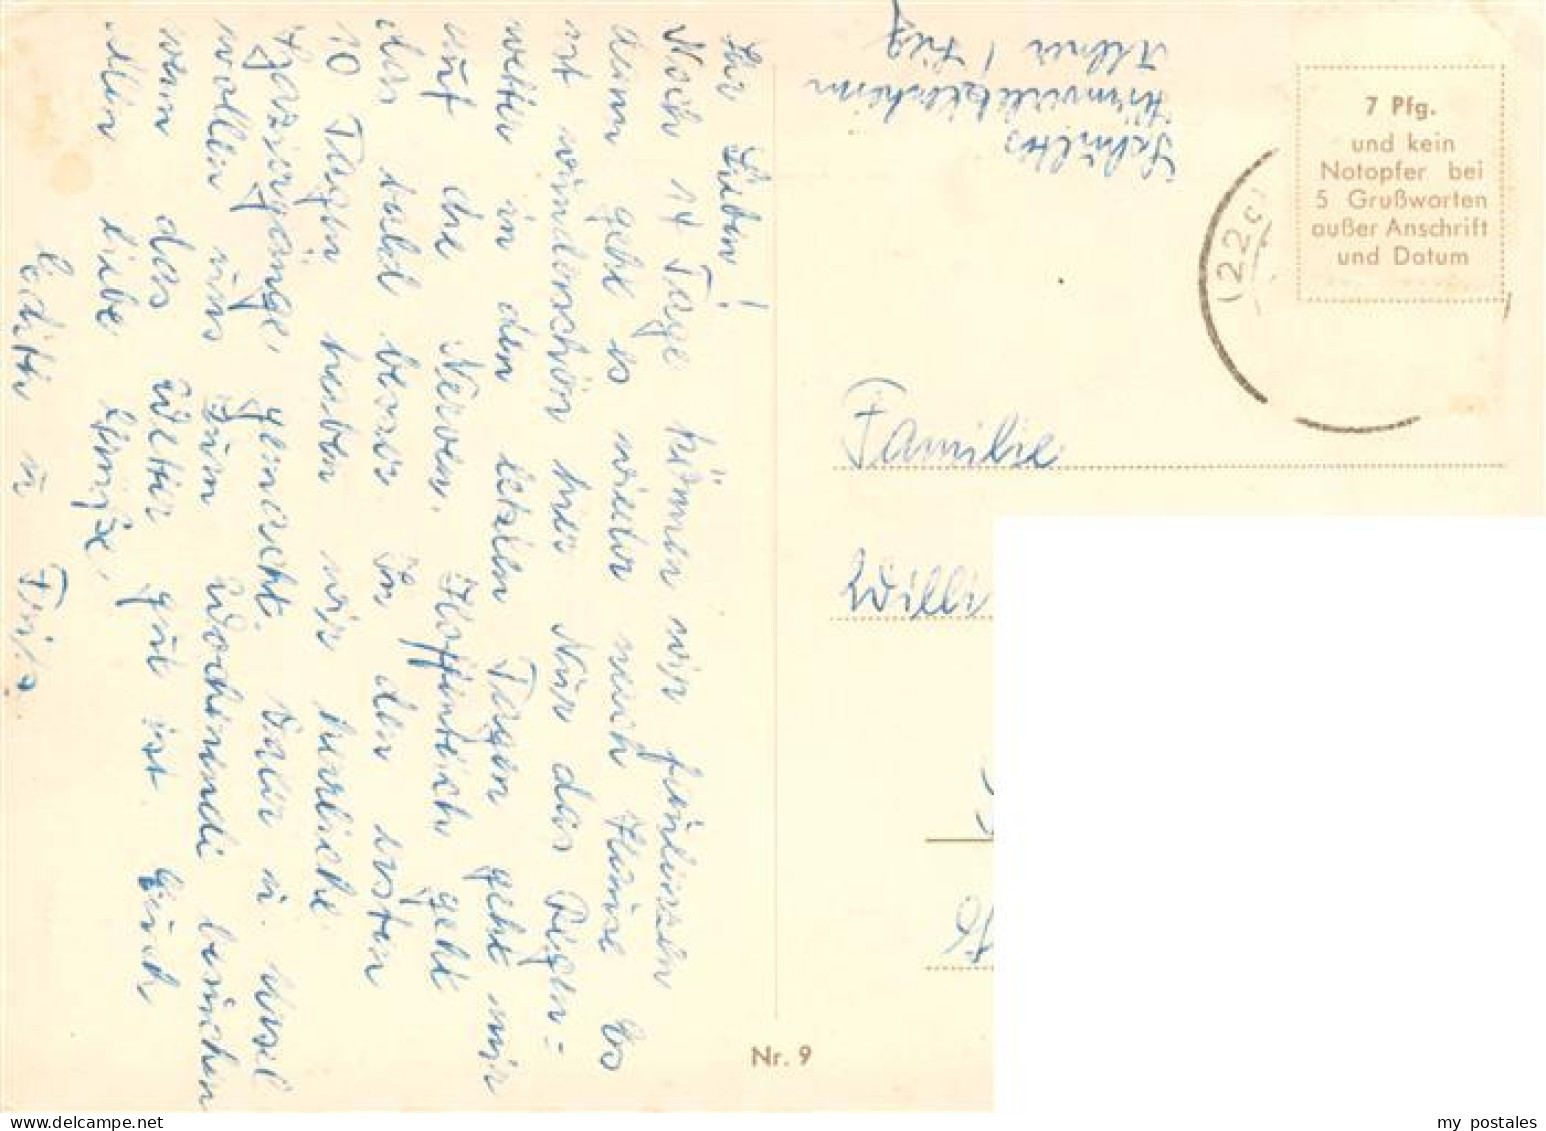 Ihr Lieben!
Noch 14 Tage können wir faulenzen
dann geht es wieder nach Hause. Es
ist wunderschön hier. Nur das Regen=
wetter in den letzten Tagen geht mir
auf die Nerven. Hoffentlich geht
das bald besser. In den ersten
10 Tagen haben wir herrliche
Spaziergänge gemacht. u.
wollen uns zum Wochenende besuchen
wenn das Wetter gut ist. Euch
allen liebe Grüße,
u.
Schultes
7 Pfg.
und kein
Notopfer bei
5 Grußworten
außer Anschrift
und Datum
(22c)
Familie
Willi
Nr. 9
my postales